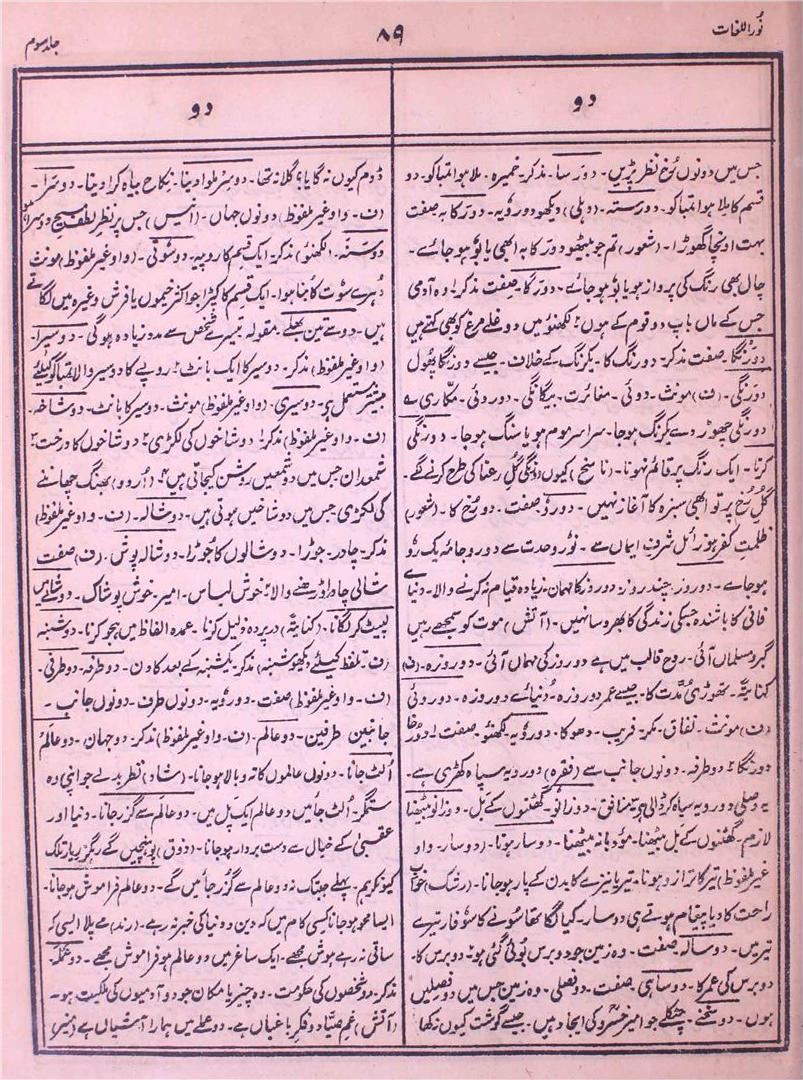 نُور اللغات
۸۹
جلد سوم
دو
دو
جس میں دونوں رُخ نظر پڑیں۔ دورَسا۔ مذکر۔ خمیرہ۔ ملا ہوا تمباکو۔ دو
قسم کا ملا ہوا تمباکو۔ دورستہ۔ (دہلی) دیکھو دورویہ۔ دورَکابہ صفت
بہت اونچا گھوڑا۔ (شعور) تم جو بیٹھو دورکابہ ابھی یابُو ہو جائے۔
چال بھی رنگ کی پرواز ہو یابُو ہو جائے۔ دورَگا۔ صفت مذکر۱ وہ آدمی
جس کے ماں باپ دو قوم کے ہوں۲ لکھنؤ میں دوغلے مرغ کو بھی کہتے ہیں
دورَنگا۔ صفت مذکر۔ دورنگ کا۔ یکرنگ کے خلاف۔ جیسے دورنگا پھول
دورنگی۔ (ف) مونث۔ دوئی۔ مغائرت۔ بیگانگی۔ دوروئی۔ مکّاری ؎
دورنگی چھوڑ دے یکرنگ ہو جا۔ سراسر موم ہو یا سنگ ہو جا۔ دورنگی
کرنا۔ ایک رنگ پر قائم نہونا۔ (ناسخ) کیوں دورنگی گلِ رعنا کی طرح کرنے لگے۔
گل رُخ پر تو ابھی سبزہ کا آغاز نہیں۔ دورُو۔ صفت۔ دو رُخ کا۔ (شعور)
ظلمتِ کفر ہو زائل شرفِ ایماں سے۔ نورِ وحدت سے دورو جائے یک رُو
ہو جائے۔ دو روز۔ چند روز۔ دو روز کا مہمان۔ زیادہ قیام نہ کرنے والا۔ دنیائے
فانی کا باشندہ جسکی زندگی کا بھروسا نہیں۔ (آتش) موت کو سمجھے رہیں
گبر و مسلماں آئی۔ روح قالب میں ہے دو روز کی مہماں آئی۔ دوروزہ۔ (ف)
کنایۃً۔ تھوڑی مُدّت کا۔ جیسے عمر دوروزہ۔ دُنیائے دوروزہ۔ دوروئی
(ف) مونث۔ نفاق۔ مکر۔ فریب۔ دھوکا۔ دورُویہ۔ لکھنؤ۔ صفت۱۔ دورُخا
دورنگا۲ دو طرفہ۔ دونوں جانب سے (فقرہ) دورویہ سپاہ کھڑی ہے۔
دوزانو۔ گھٹنوں کے بل۔ دوزانو بیٹھنا
لازم۔ گھٹنوں کے بل بیٹھنا۔ مؤدبانہ بیٹھنا۔ دوسار ہونا۔ (دوسار۔ واو
غیر ملفوظ) تیر کا ترازو ہونا۔ تیر یا نیزے کا بدن کے پار ہو جانا۔ (رشک) خواب
راحت کا دیا پیغام ہوتے ہی دوسار۔ کیا لگا تھا سونے کا سوفار تیرے
تیر میں۔ دوسالہ۔ صفت۔ وہ زمین جو دو برس بوئی گئی ہو۔ دو برس کا۔
دو برس کی عمر کا۔ دوساہی۔ صفت۔ دوفصلی۔ وہ زمین جس میں دو فصلیں
ہوں۔ دوسخنے۔ چٹکلے جو امیر خسروؒ کی ایجاد ہیں۔ جیسے گوشت کیوں نہ کھا
ڈوم کیوں نہ گایا؟ گلا نہ تھا۔ دوسر ملوا دینا۔ نکاح بیاہ کرا دینا۔ دوسرا۔
(ف۔ واو غیر ملفوظ) دونوں جہاں۔ (انیس) جس پر نظر لطفِ مسیحِ دوسرا ہو
دوسَتہ۔ (لکھنؤ) مذکر۔ ایک قسم کا روپیہ۔ دوسُوتی۔ (واو غیر ملفوظ) مونث
دُہرے سُوت کا بُنا ہوا۔ ایک قسم کا کپڑا جو اکثر خیموں یا فرش وغیرہ میں لگاتے
ہیں۔ دو سے تین بھلے۔ مقولہ۔ تیسرے شخص سے مدد زیادہ ہو گی۔ دوسیرا۔
(واو غیر ملفوظ) مذکر۔ دوسیر کا ایک بانٹ۲ روپے کا دوسیر والا تمباکو کیلئے
بیشتر مستعمل ہے۔ دوسیری۔ (واو غیر ملفوظ) مونث۔ دوسیر کا بانٹ۔ دوشاخہ
(ف۔ واو غیر ملفوظ) مذکر۱ دو شاخوں کی لکڑی۲ دو شاخوں کا درخت۳
شمعدان جس میں دو شمعیں روشن کیجاتی ہیں۴ (اُردو) بھنگ چھاننے
کی لکڑی جس میں دو شاخیں ہوتی ہیں۔ دوشالہ۔ (ف۔ واو غیر ملفوظ)
مذکر۔ چادر۔ جوڑا۔ دو شالوں کا جُوڑا۔ دوشالہ پوش۔ (ف) صفت
شالی چادر اوڑھنے والا۲ خوش لباس۔ امیر۔ خوش پوشاک۔ دوشالے میں
لپیٹ کر لگانا۔ (کنایۃً) درپردہ ذلیل کرنا۔ عمدہ الفاظ میں ہجو کرنا۔ دوشنبہ
(ف۔ تلفظ کیلئے دیکھو شنبہ) مذکر۔ یکشنبہ کے بعد کا دن۔ دوطرفہ۔ دوطرفی۔
(ف۔ واو غیر ملفوظ) صفت۔ دورویہ۔ دونوں طرف۔ دونوں جانب۔
جانبین۔ طرفین۔ دوعالم۔ (ف۔ واو غیر ملفوظ) مذکر۔ دو جہان۔ دوعالم
اُلٹ جانا۔ دونوں عالموں کا تہ و بالا ہو جانا۔ (شاد) نظر بدلے جو اپنی وہ
ستمگر۔ اُلٹ جائیں دوعالم ایک پل میں۔ دوعالم سے گزر جانا۔ دنیا اور
عقبیٰ کے خیال سے دست بردار ہو جانا۔ (ذوق) پہنچیں گے رہگزرِ یار تلک
کیونکر ہم۔ پہلے جبتک نہ دوعالم سے گزر جائیں گے۔ دوعالم فراموش ہو جانا۔
ایسا محو ہو جانا کسی کام میں کہ دین و دنیا کی خبر نہ رہے۔ (رند) مے پلا ایسی کہ
ساقی نہ رہے ہوش مجھے۔ ایک ساغر میں دوعالم ہو فراموش مجھے۔ دوعملہ۔
مذکر۔ دو شخصوں کی حکومت۔ وہ چیز یا مکان جو دو آدمیوں کی ملکیت ہو۔
(آتش) غمِ صیّاد و فکرِ باغباں ہے۔ دوعملے میں ہمارا آشیاں ہے (منیر)